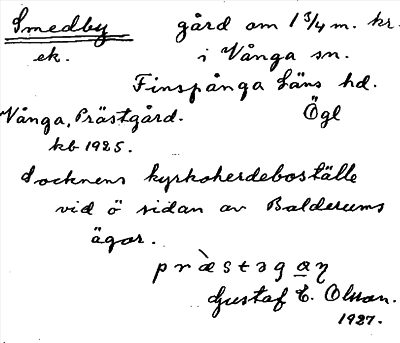 Smedby gård om 1 3/4 m. kr.
ek. i Vånga sn.
Finspånga Läns hd.
Vånga, Prästgård. Ögl
kb 1925.
Socknens kyrkoherdeboställe
vid ö sidan av Balderums
ägor.
pr̀æstəgaɳ
Gustaf E. Olsson.
1927.